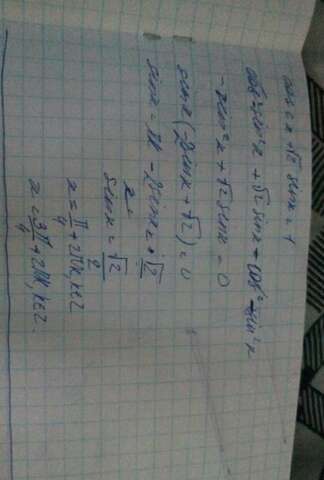 cos 2x + √2 sinx = 1
cos²-sin²x + √2 sinx = cos²-sin²x
-2sin²x + √2 sinx = 0
sinx(-2sinx + √2) = 0
sinx = πk -2sinx + √2
sinx = √2/2
x = π/4 + 2πk, k∈Z
x = 3π/4 + 2πk, k∈Z